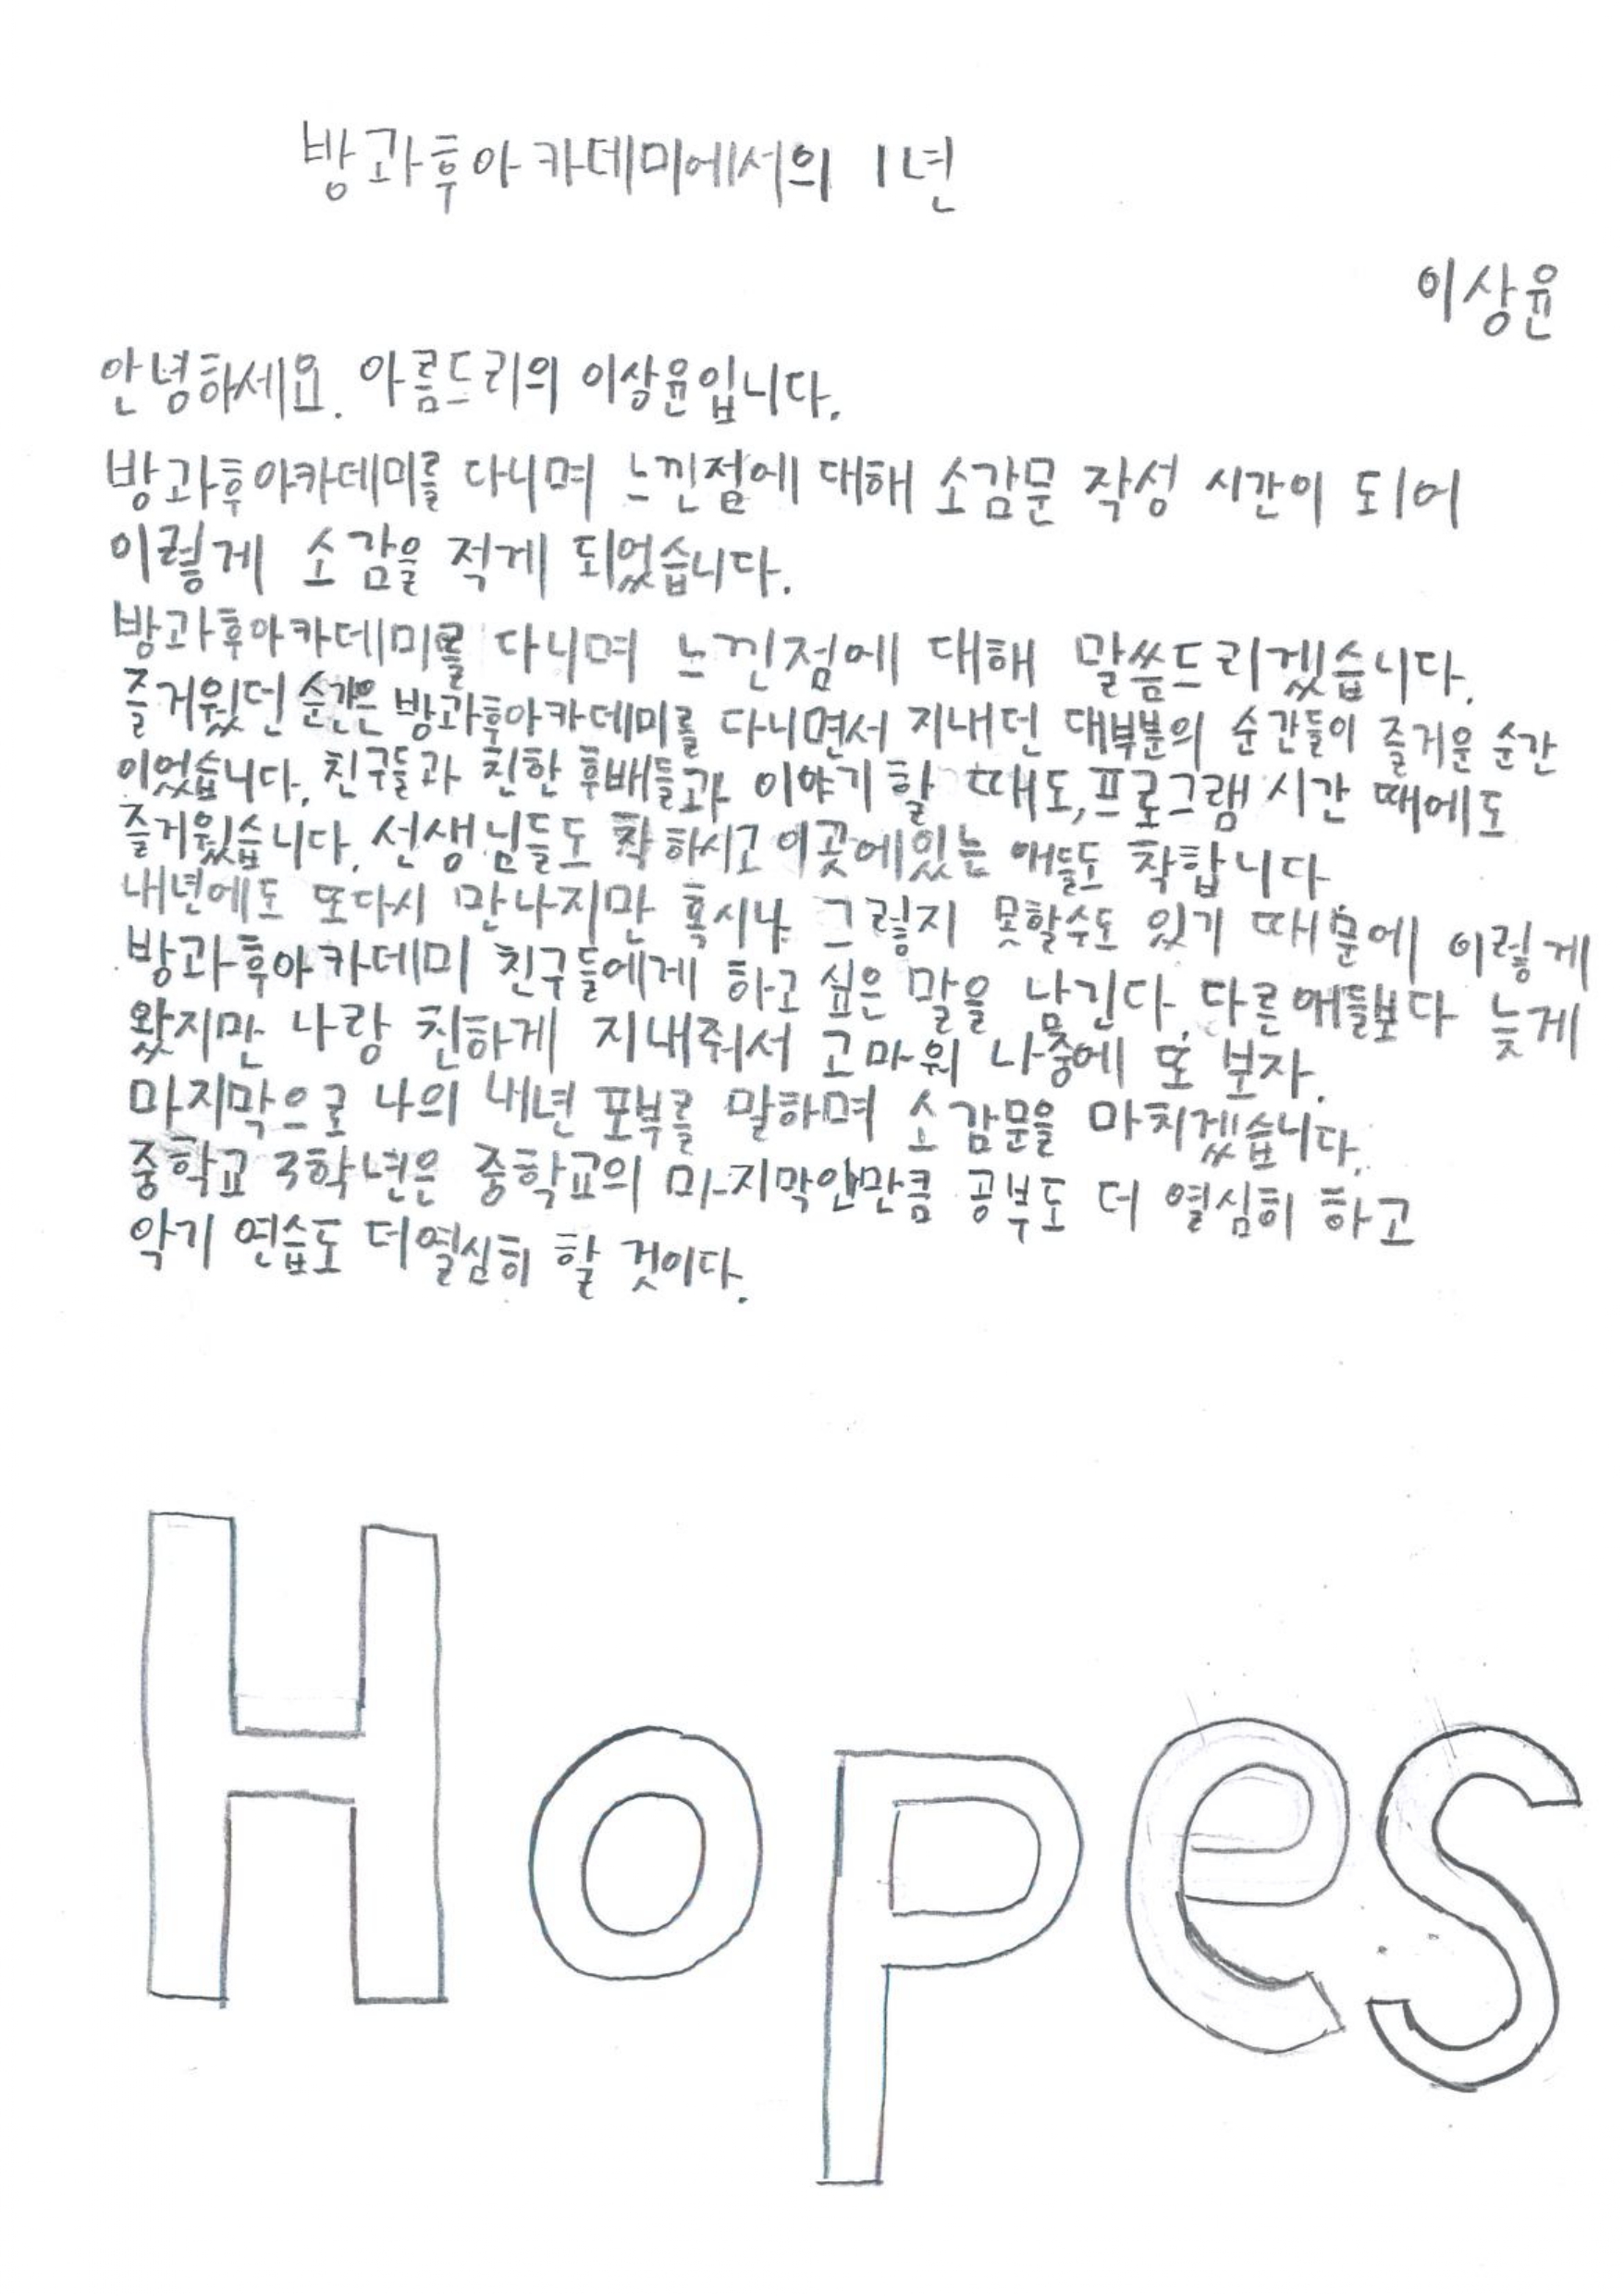 방과후아카데미에서의 1년
이상윤
안녕하세요. 아름드리의 이상윤입니다.
방과후아카데미를 다니며 느낀점에 대해 소감문 작성 시간이 되어
이렇게 소감을 적게 되었습니다.
방과후아카데미를 다니며 느낀점에 대해 말씀드리겠습니다.
즐거웠던 순간은 방과후아카데미를 다니면서 지내던 대부분의 순간들이 즐거운 순간
이었습니다. 친구들과 친한 후배들과 이야기 할 때도, 프로그램 시간 때에도
즐거웠습니다. 선생님들도 착하시고 이곳에있는 애들도 착합니다.
내년에도 또다시 만나지만 혹시나 그렇지 못할수도 있기 때문에 이렇게
방과후아카데미 친구들에게 하고 싶은 말을 남긴다. 다른애들보다 늦게
왔지만 나랑 친하게 지내줘서 고마워 나중에 또 보자.
마지막으로 나의 내년 포부를 말하며 소감문을 마치겠습니다.
중학교 3학년은 중학교의 마지막인만큼 공부도 더 열심히 하고
악기 연습도 더열심히 할 것이다.
Hopes